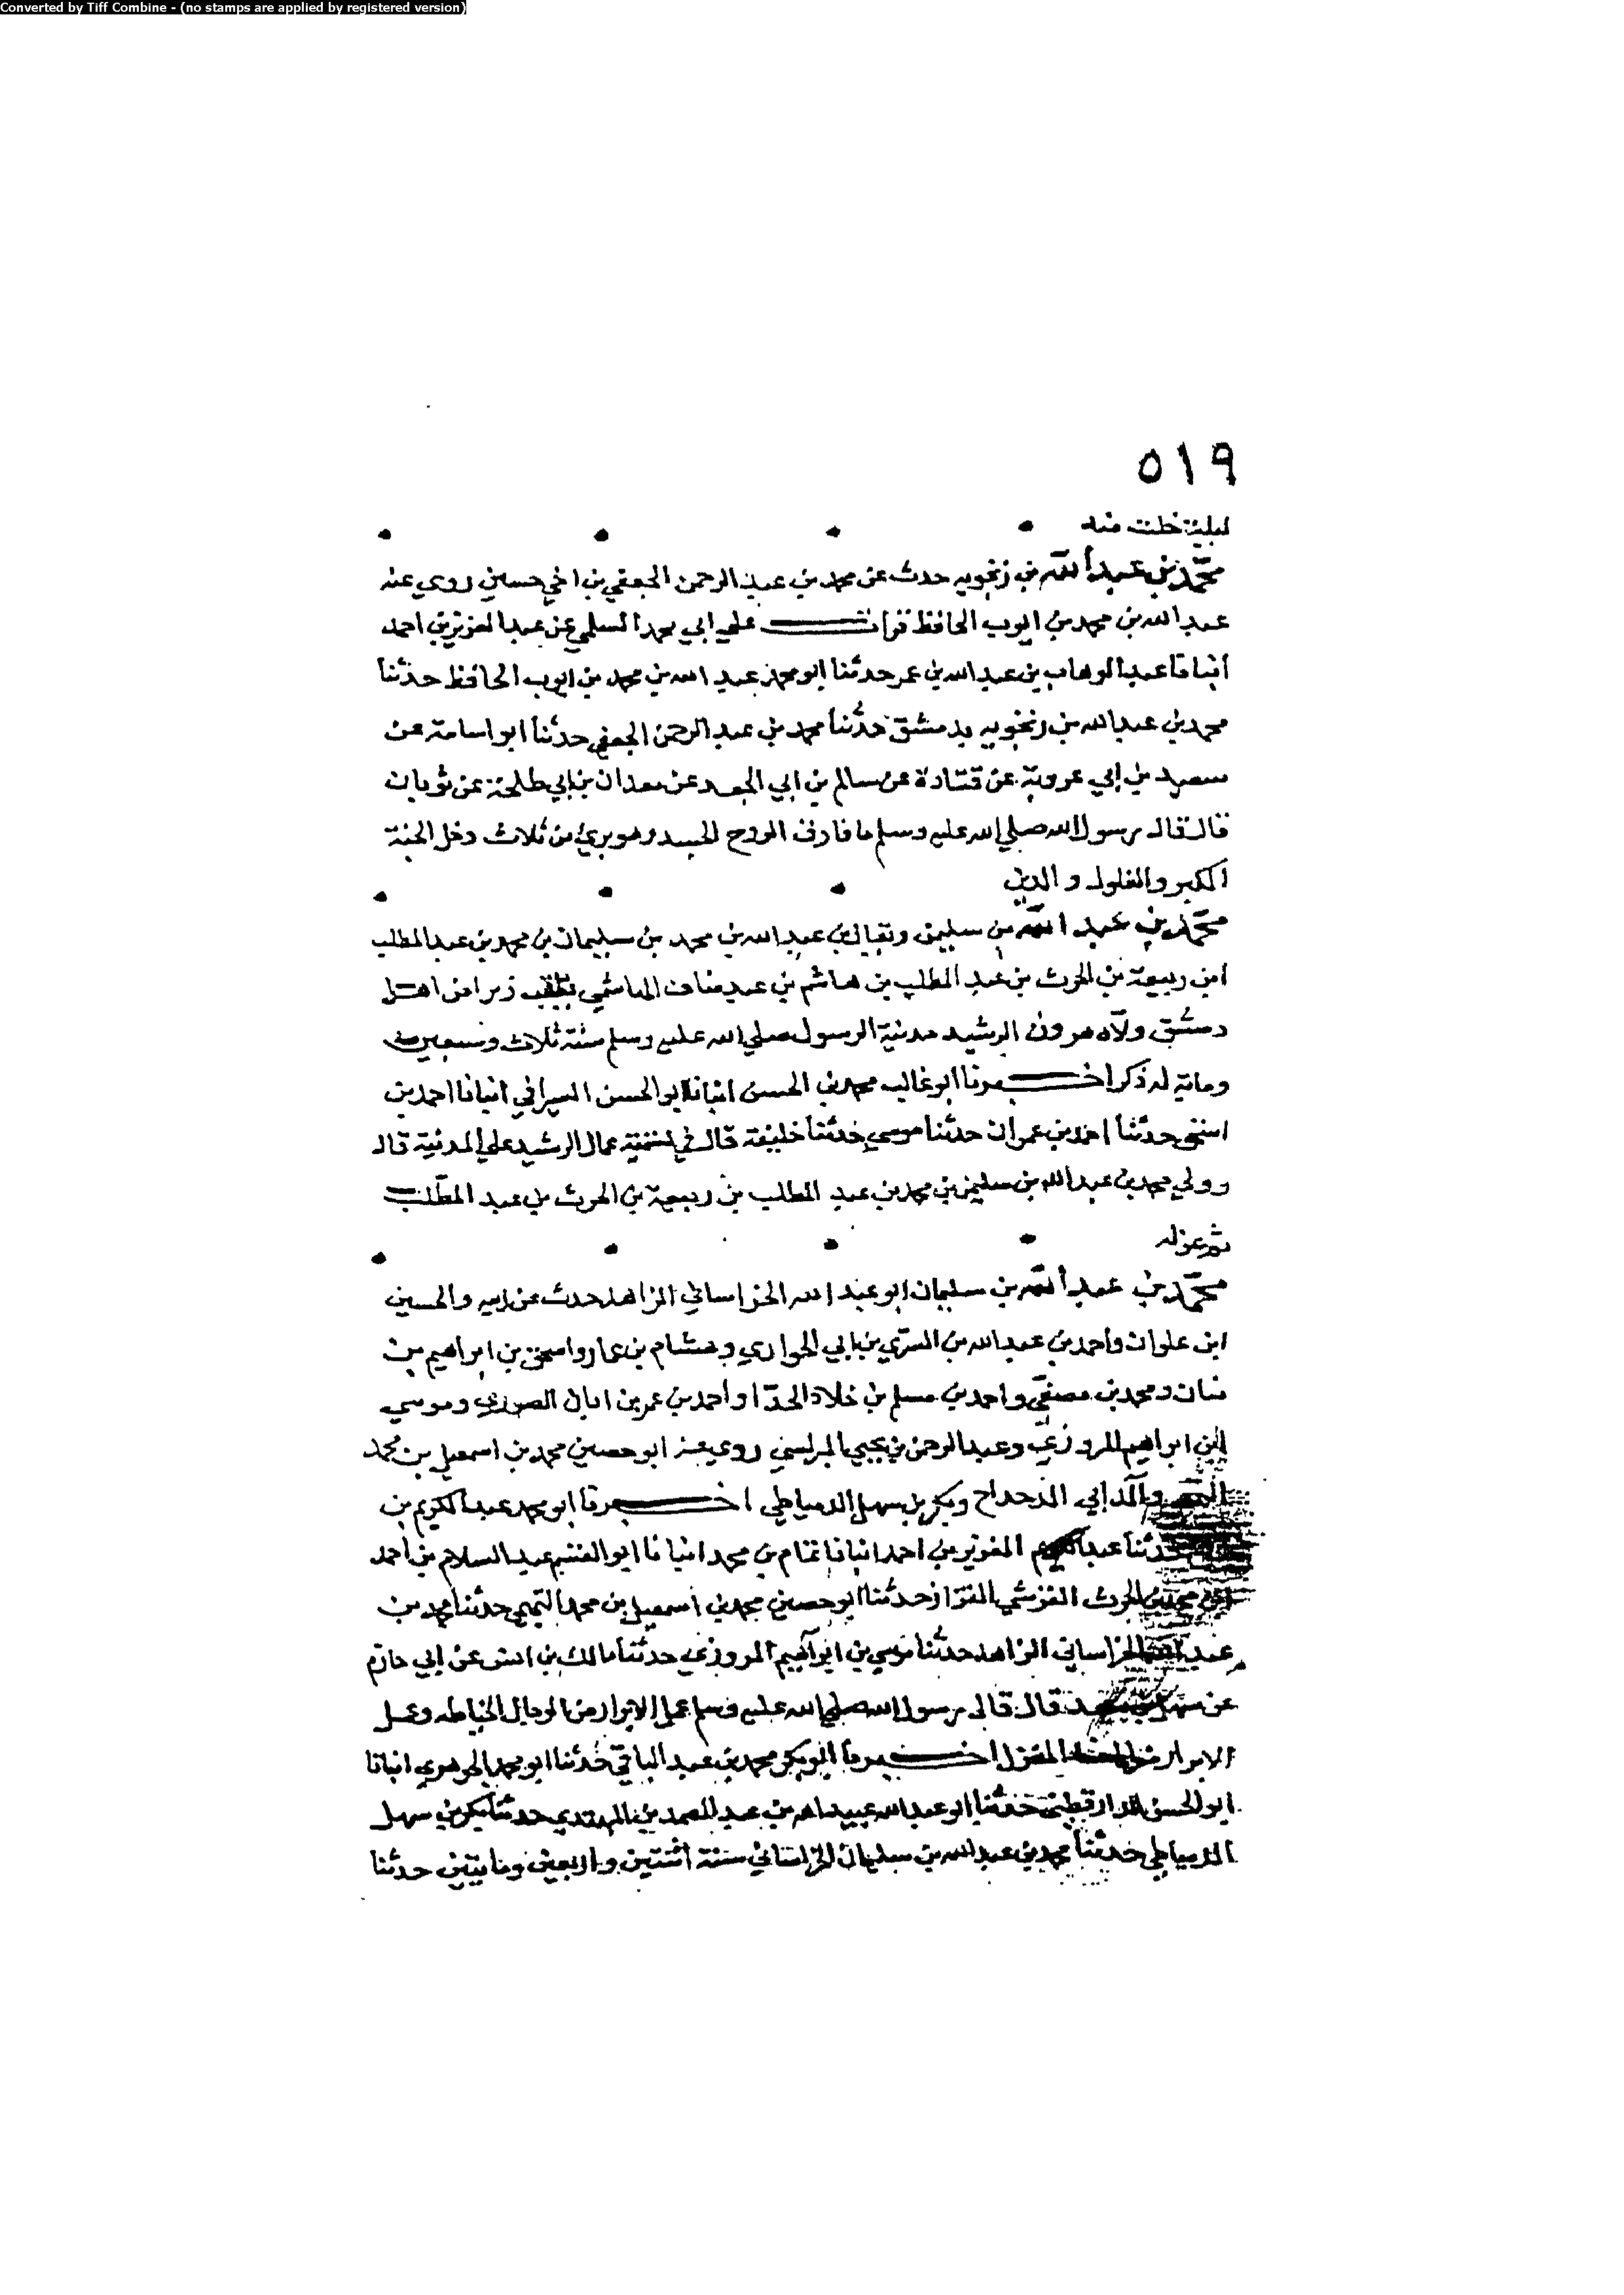 Converted by Tiff Combine - (no stamps are applied by registered version)
٥١٩
لليلة خلت منه
محمد بن عبد الله بن زنجويه حدث عن محمد بن عبد الرحمن الجعفي بن اخي حسين روي عنه
عبد الله بن محمد بن ايوب الحافظ قرات علي ابي محمد السلمي عن عبد العزيز بن احمد
انبانا عبد الوهاب بن عبد الله بن عمر حدثنا ابو محمد عبد الله بن محمد بن ايوب الحافظ حدثنا
محمد بن عبد الله بن زنجويه بدمشق حدثنا محمد بن عبد الرحمن الجعفي حدثنا ابو اسامة عن
سعيد بن ابي عروبة عن قتادة عن سالم بن ابي الجعد عن معدان بن ابي طلحة عن ثوبان
قال قال رسول الله صلي الله عليه وسلم ما فارق الروح الجسد وهو بريء من ثلاث دخل الجنة
الكبر والغلول والدين
محمد بن عبد الله بن سليمن ويقال بن عبد الله بن محمد بن سليمان بن محمد بن عبد المطلب
ابن ربيعة بن الحرث بن عبد المطلب بن هاشم بن عبد مناف الهاشمي يلقب زبرا من اهل
دمشق ولاه هرون الرشيد مدينة الرسول صلي الله عليه وسلم سنة ثلاث وسبعين
وماية له ذكر اخبرنا ابو غالب محمد بن الحسن انبانا ابو الحسن السيرافي انبانا احمد بن
اسحق حدثنا احمد بن عمران حدثنا موسي حدثنا خليفة قال في تسمية عمال الرشيد علي المدينة قال
وولي محمد بن عبد الله بن سليمن بن محمد بن عبد المطلب بن ربيعة بن الحرث بن عبد المطلب
ثم عزله
محمد بن عبد الله بن سليمان ابو عبد الله الخراساني الزاهد حدث عن ابيه والحسين
ابن علوان واحمد بن عبد الله بن السري بن ابي الحواري وهشام بن عمار واسحق بن ابراهيم بن
بنان ومحمد بن مصفي واحمد بن مسلم بن خلاد الحدا واحمد بن عمر بن ابان الصوري وموسي
ابن ابراهيم المروزي وعبد الرحمن بن يحيي روي عنه ابو حصين محمد بن اسمعيل بن محمد
والد ابي الدحداح وبكر بن سهل الدمياطي اخبرنا ابو محمد عبد الكريم بن
حدثنا عبد العزيز بن احمد انبانا تمام بن محمد انبانا ابو القسم عبد السلام بن احمد
ابن محمد بن الحرث القرشي القزاز حدثنا ابو حصين محمد بن اسمعيل بن محمد التميمي حدثنا محمد بن
عبد الله الخراساني الزاهد حدثنا موسي بن ابراهيم المروزي حدثنا مالك بن انس عن ابي حازم
عن سهل بن سعد قال قال رسول الله صلي الله عليه وسلم عمل الابرار من الرجال الخياطه وعمل
الابرار من النسا المغزل اخبرنا ابو بكر محمد بن عبد الباقي حدثنا ابو محمد الجوهري انبانا
ابو الحسن الدارقطني حدثنا ابو عبد الله عبيد الله بن عبد الصمد بن المهتدي حدثنا بكر بن سهل
الدمياطي حدثنا محمد بن عبد الله بن سليمان الخراساني سنة اثنتين واربعين ومايتين حدثنا